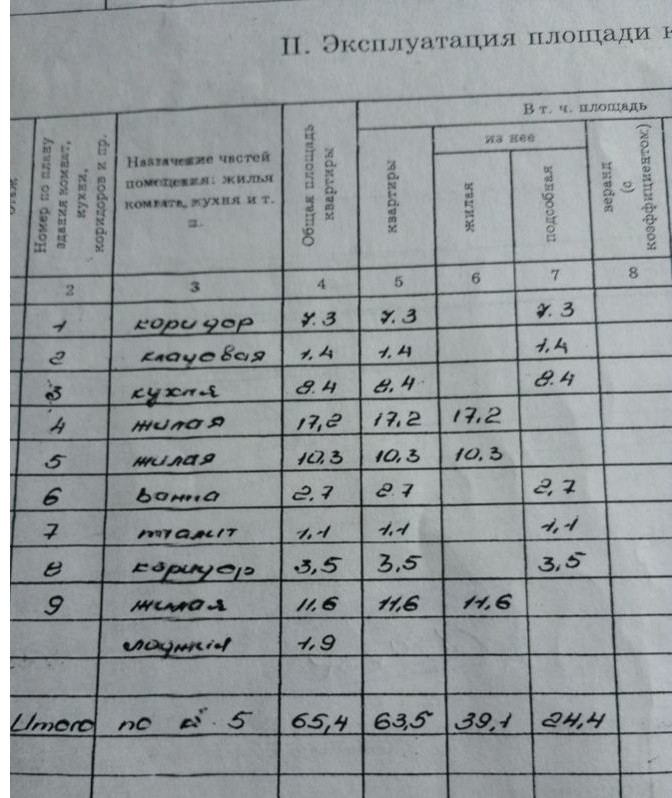 II. Эксплуатация площади к
Номер по плану здания комнат, кухни, коридоров и пр.
Назначение частей помещения: жилья комната, кухня и т. п.
Общая площадь квартиры
В т. ч. площадь
квартиры
из нее
жилая
подсобная
веранд (с коэффициентом)
2 3 4 5 6 7 8
1 коридор 7.3 7.3 7.3
2 кладовая 1.4 1.4 1.4
3 кухня 8.4 8.4 8.4
4 жилая 17,2 17,2 17,2
5 жилая 10,3 10,3 10.3
6 ванна 2.7 2.7 2,7
7 туалет 1,1 1,1 1,1
8 коридор 3,5 3,5 3,5
9 жилая 11.6 11,6 11,6
лоджия 1,9
Итого по 5 65,4 63,5 39,1 24,4